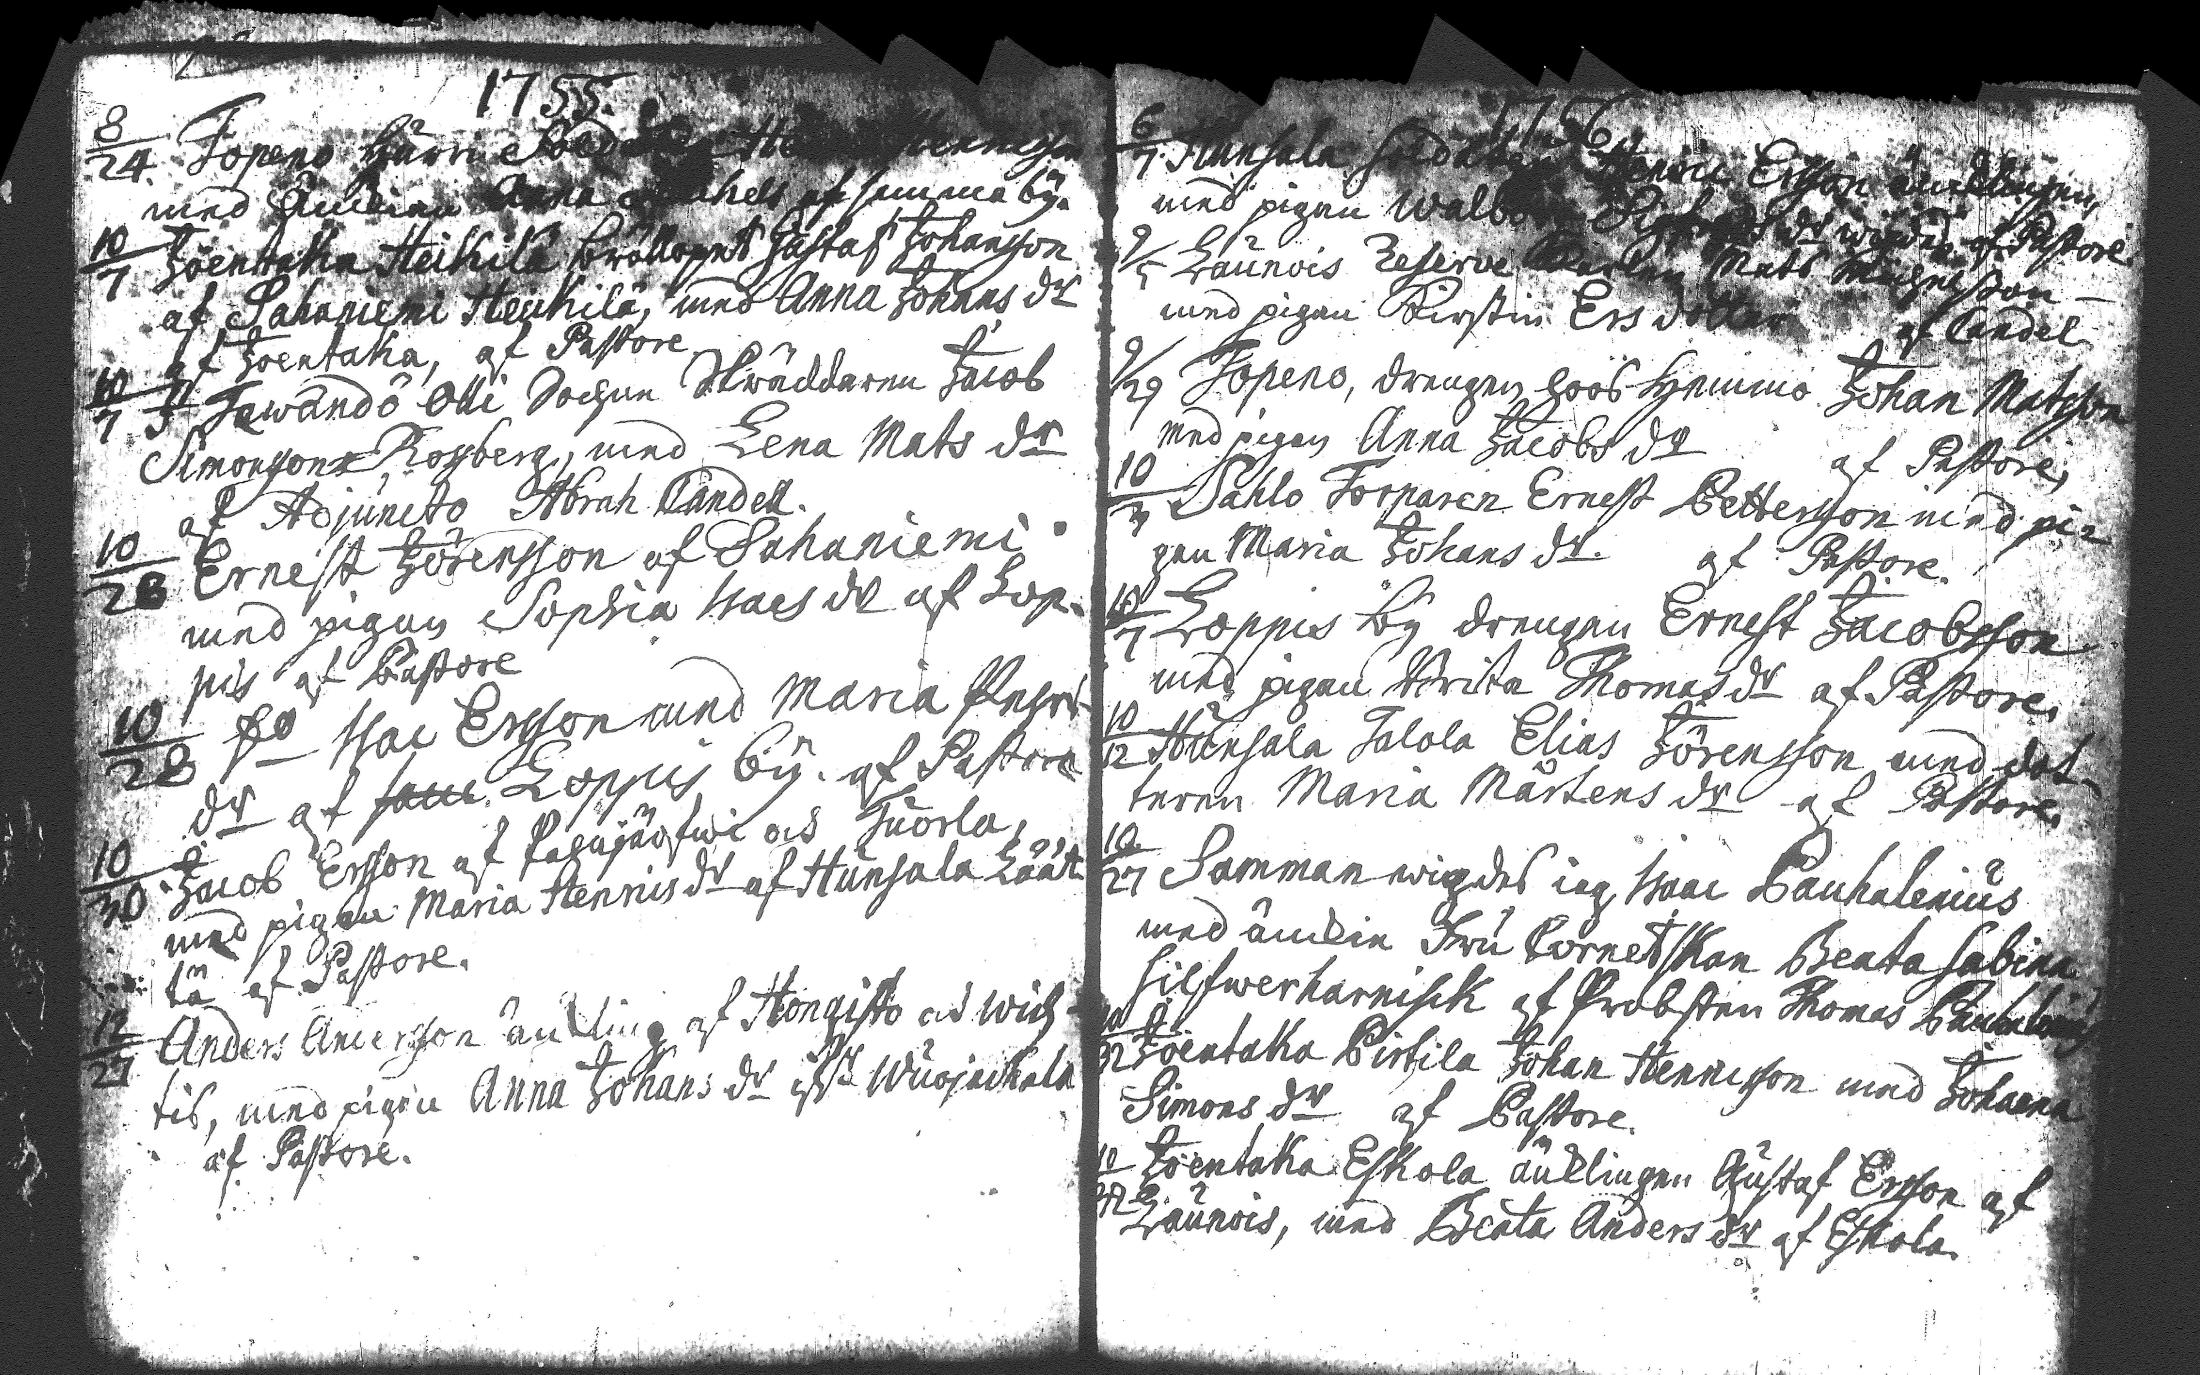 1755.
8/24 Topeno Härri Soldaten Henrisson
med Änkian Anna Michels af samma by.
10/7 Joentaka Heikilä brölloppet Gustaf Johansson
af Sahaniemi Heikilä, med Anna Johans dr
af Joentaka, af Pastore
10/7 Jr Tewändö Olli Sochn Skräddaren Jacob
Simonsson Rosberg, med Lena Mats dr
af Adjuncto Abrah Candell.
10/28 Ernest Jörensson af Sahaniemi
med pigan Sophia Isacs dr af Lop-
pis af Pastore
10/28 Isac Ersson med Maria
dr af Loppis bÿ. af Pastore
10/30 Jacob Ersson af Tuorla,
med pigan Maria Henrics dr af Hunsala Läät
tä af Pastore.
12/27 Anders Andersson änkling af Hongisto ad Wich-
tis, med pigan Anna Johans dr
af Pastore.
1756
6/7 Hunsala Soldaten Henric Ersson änklingen,
med pigan Walborg dr wigde af Pastore.
9/5 Launois Reserve Karlen Mats
med pigan Kirstin Ers dotter af Candel
9/29 Topeno, drengen Johan Matsson
med pigan Anna Jacobs dr af Pastore,
10/3 Sahlo Torparen Ernest Pettersson med pi-
gan Maria Johans dr. af Pastore.
10/7 Loppis by drengen Ernest Jacobsson
med pigan Brita Thomas dr af Pastore.
10/12 Hunsala Talola Elias Jörensson med dot-
teren Maria Mårtens dr af Pastore.
10/27 Samman wigdes iag Isaac Pauhalenius
med änckin Fru Cornetskan Beata Sabina
Silfwerharnisck af Probsten Thomas Pauhalenius
Joentaka Pirtilä Johan Henricsson med Johanna
Simons dr af Pastore.
Joentaka Eskola änklingen Gustaf Ersson af
Launois, med Beata Anders dr af Eskola.